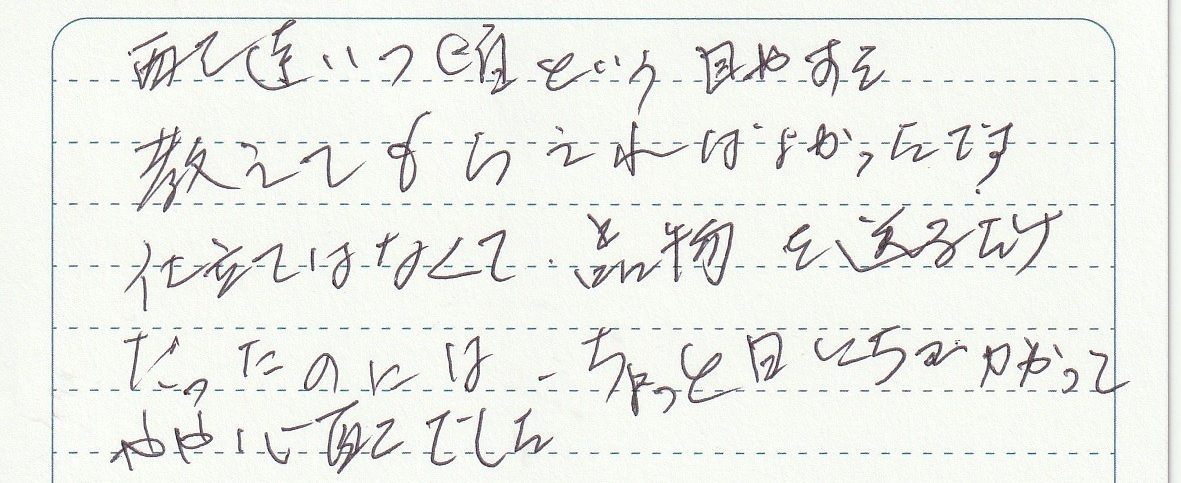 配達いつ頃という目やすを
教えてもらえればよかったです
仕立てはなくて、品物を送るだけ
だったのには、ちょっと日にちがかかって
やや心配でした